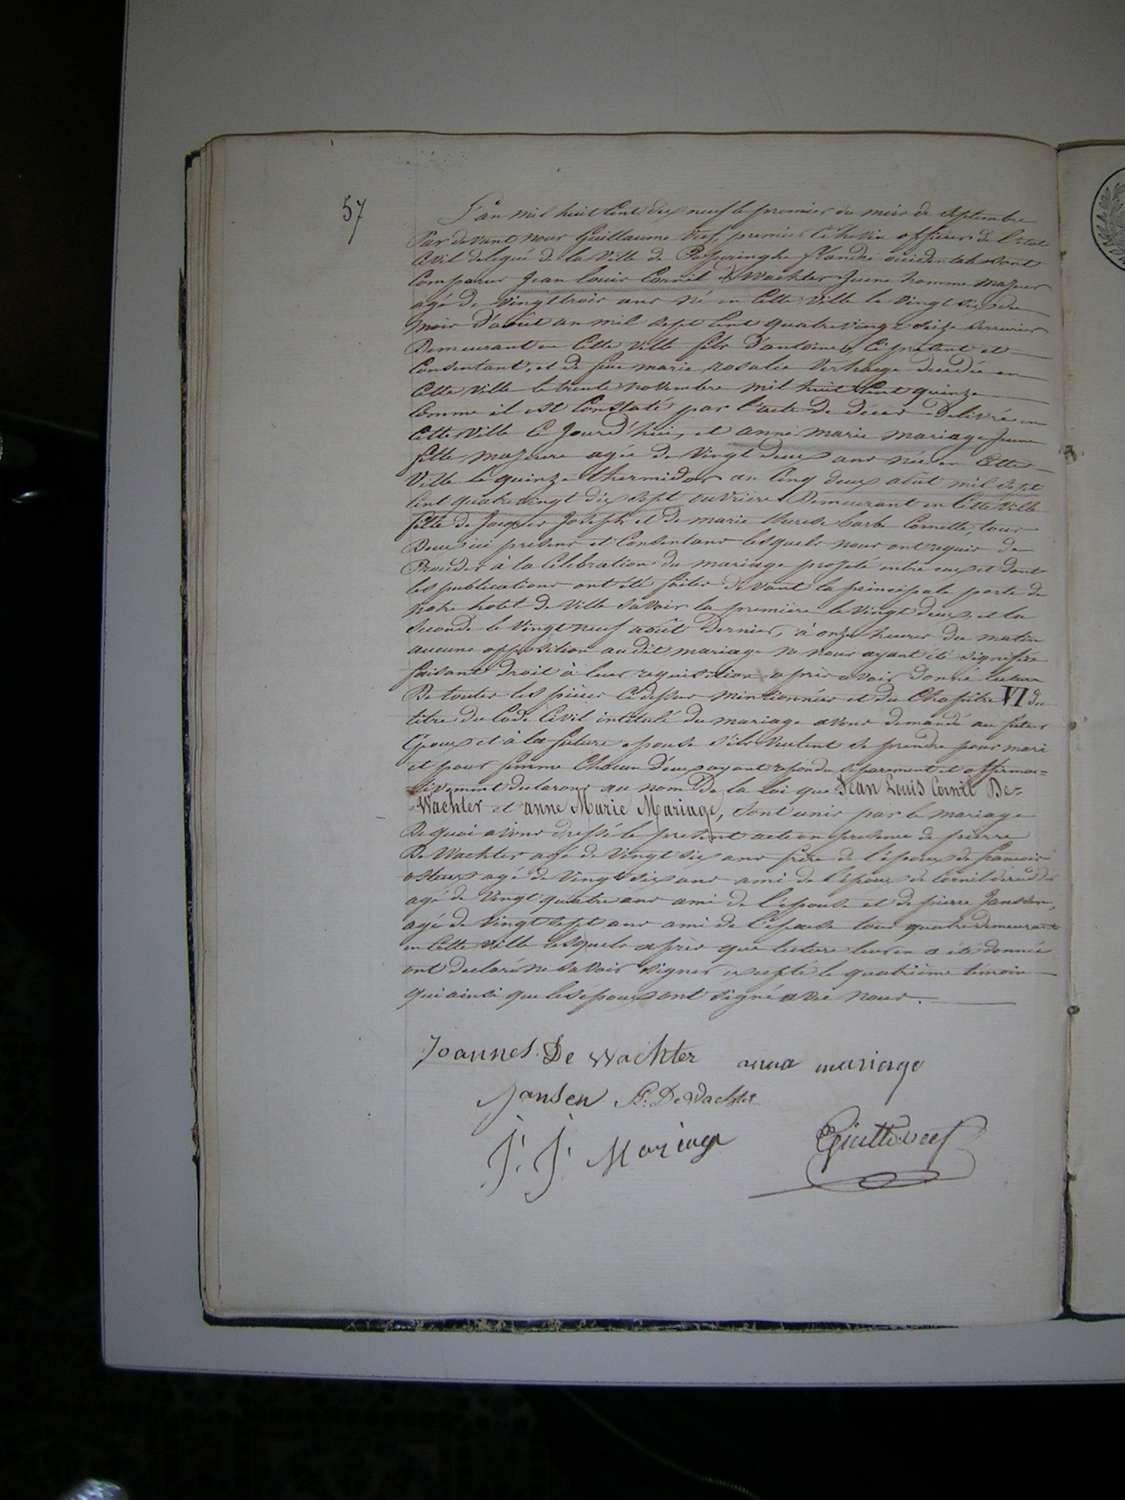 57
L'an mil huit Cent dix neuf le premier du mois de Septembre
Par devant nous Guillaume Vef, premier Echevin officier de l'Etat
Civil delegué de la Ville de Poperinghe flandre occidentale sont
Comparus Jean Louis Cornil De Wachter Jeune homme majeur
agé de Vingt trois ans né en Cette Ville le Vingt six du
mois d'août an mil Sept Cent quatre vingt Seize Serrurier
Demeurant en Cette Ville fils d'antoine, ici présent et
Consentant, et de feue marie rosalie Verhaege decedée en
Cette Ville le trente novembre mil huit Cent quinze
Comme il est Constaté par l'acte de deces Delivré en
Cette Ville Ce Jourd'hui, et anne marie mariage Jeune
fille majeure agée de Vingt deux ans née en Cette
Ville le quinze thermidor an Cinq deux août mil Sept
Cent quatre vingt dix Sept ouvriere Demeurant en Cette Ville
fille de Jacques Joseph et de marie therese barbe Cornette, tous
Deux ici présens et Consentans lesquels nous ont requis de
Proceder à la Célébration du mariage projeté entre eux et dont
les publications ont été faites devant la principale porte de
notre hotel de Ville Savoir la première le vingt deux et la
Seconde le vingt neuf août Dernier, à onze heures du matin
aucune opposition audit mariage ne nous ayant été signifiée
faisant droit à leur requisition après avoir donné lecture
De toutes les pièces Cidessus mentionnées et du Chapitre VI du
titre du Code Civil intitulé du mariage avons demandé au futur
Epoux et à la future epouse s'ils veulent se prendre pour mari
et pour femme Chacun d'eux ayant repondu Séparement et affirma=
tivement declarons au nom De la loi que Jean Louis Cornil De=
Wachter et anne Marie Mariage, Sont unis par le mariage
De quoi avons dressé le présent acte en présence de pierre
De Wachter agé de Vingt six ans frère de l'époux de francois
agé de Vingt six ans ami de l'époux de Cornil
agé de Vingt quatre ans ami de l'epouse et de pierre Jansen,
agé de Vingt sept ans ami de l'epouse tous quatre demeurants
en Cette Ville lesquels après que lecture leur en a été donnée
ont declaré ne Savoir Signer excepté le quatrième témoin
qui ainsi que les époux ont Signé avec nous.
Joannes De Wachter anna mariage
Jansen De Wachter
J: J: Mariage